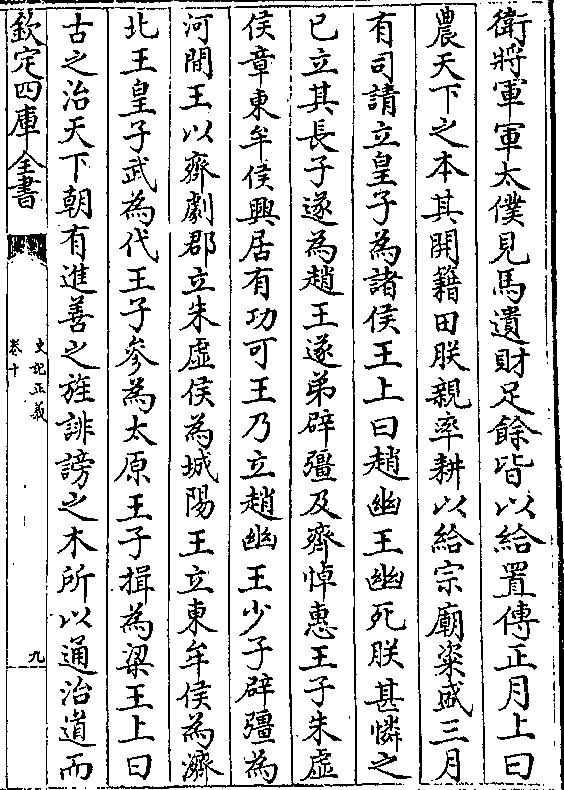 衛將軍軍太僕見馬遺財足餘皆以給置傳正月上曰
農天下之本其開籍田朕親率耕以給宗廟粢盛三月
有司請立皇子為諸侯王上曰趙幽王幽死朕甚憐之
已立其長子遂為趙王遂弟辟彊及齊悼惠王子朱虛
侯章東牟侯興居有功可王乃立趙幽王少子辟彊為
河間王以齊劇郡立朱虛侯為城陽王立東牟侯為濟
北王皇子武為代王子參為太原王子揖為梁王上曰
古之治天下朝有進善之旌誹謗之木所以通治道而
欽定四庫全書
史記正義
卷十
九